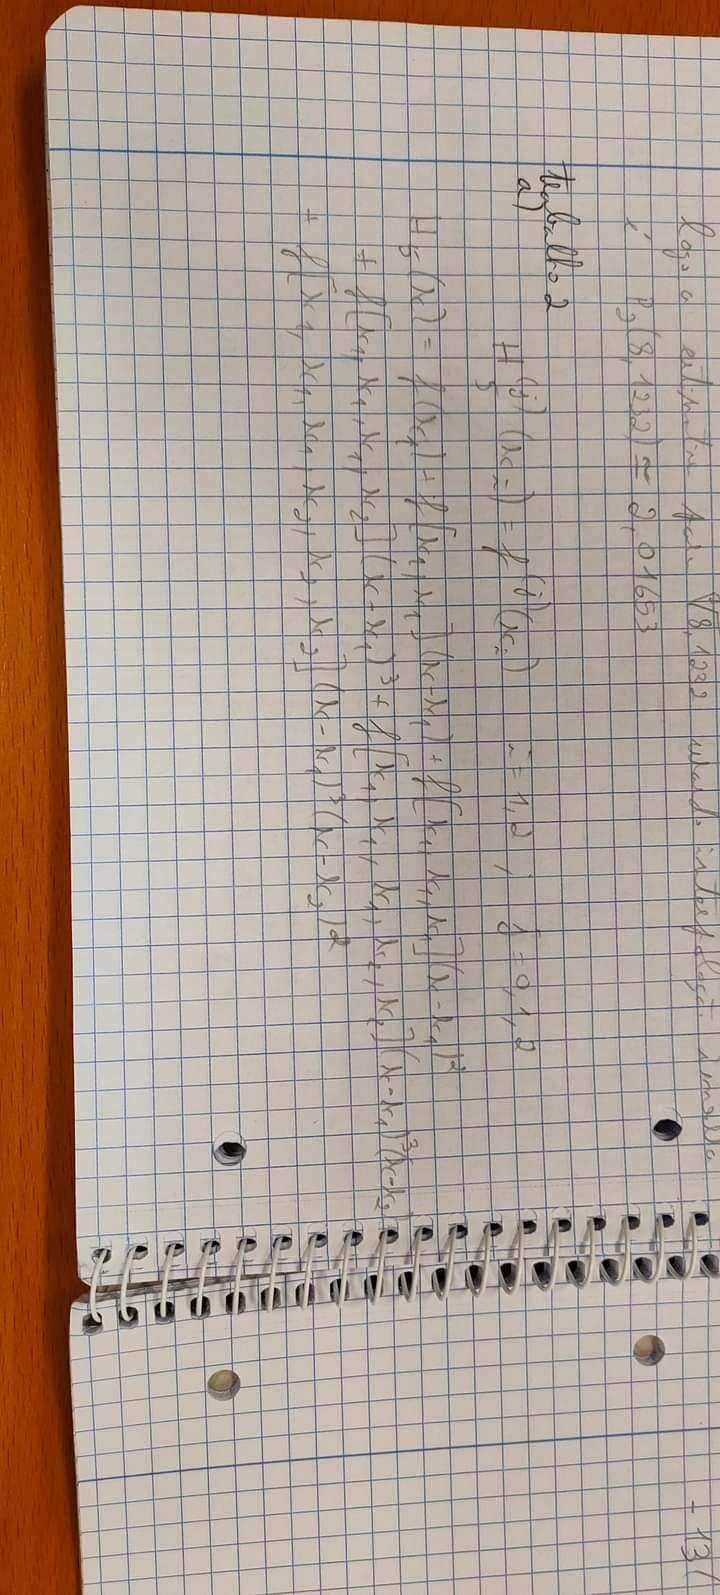 Logo a estimativa para ∛8,1232 usando interpolação
é P₂(8,1232) ≈ 2,01653
- 13(
trabalho 2
a)
H₅^(j)(x_i) = f^(j)(x_i) i = 1,2 ; j = 0,1,2
H₅(x) = f(x₁) + f[x₁, x₁](x-x₁) + f[x₁, x₁, x₁](x-x₁)²
+ f[x₁, x₁, x₁, x₂](x-x₁)³ + f[x₁, x₁, x₁, x₂, x₂](x-x₁)³(x-x₂)
+ f[x₁, x₁, x₁, x₂, x₂, x₂](x-x₁)³(x-x₂)²